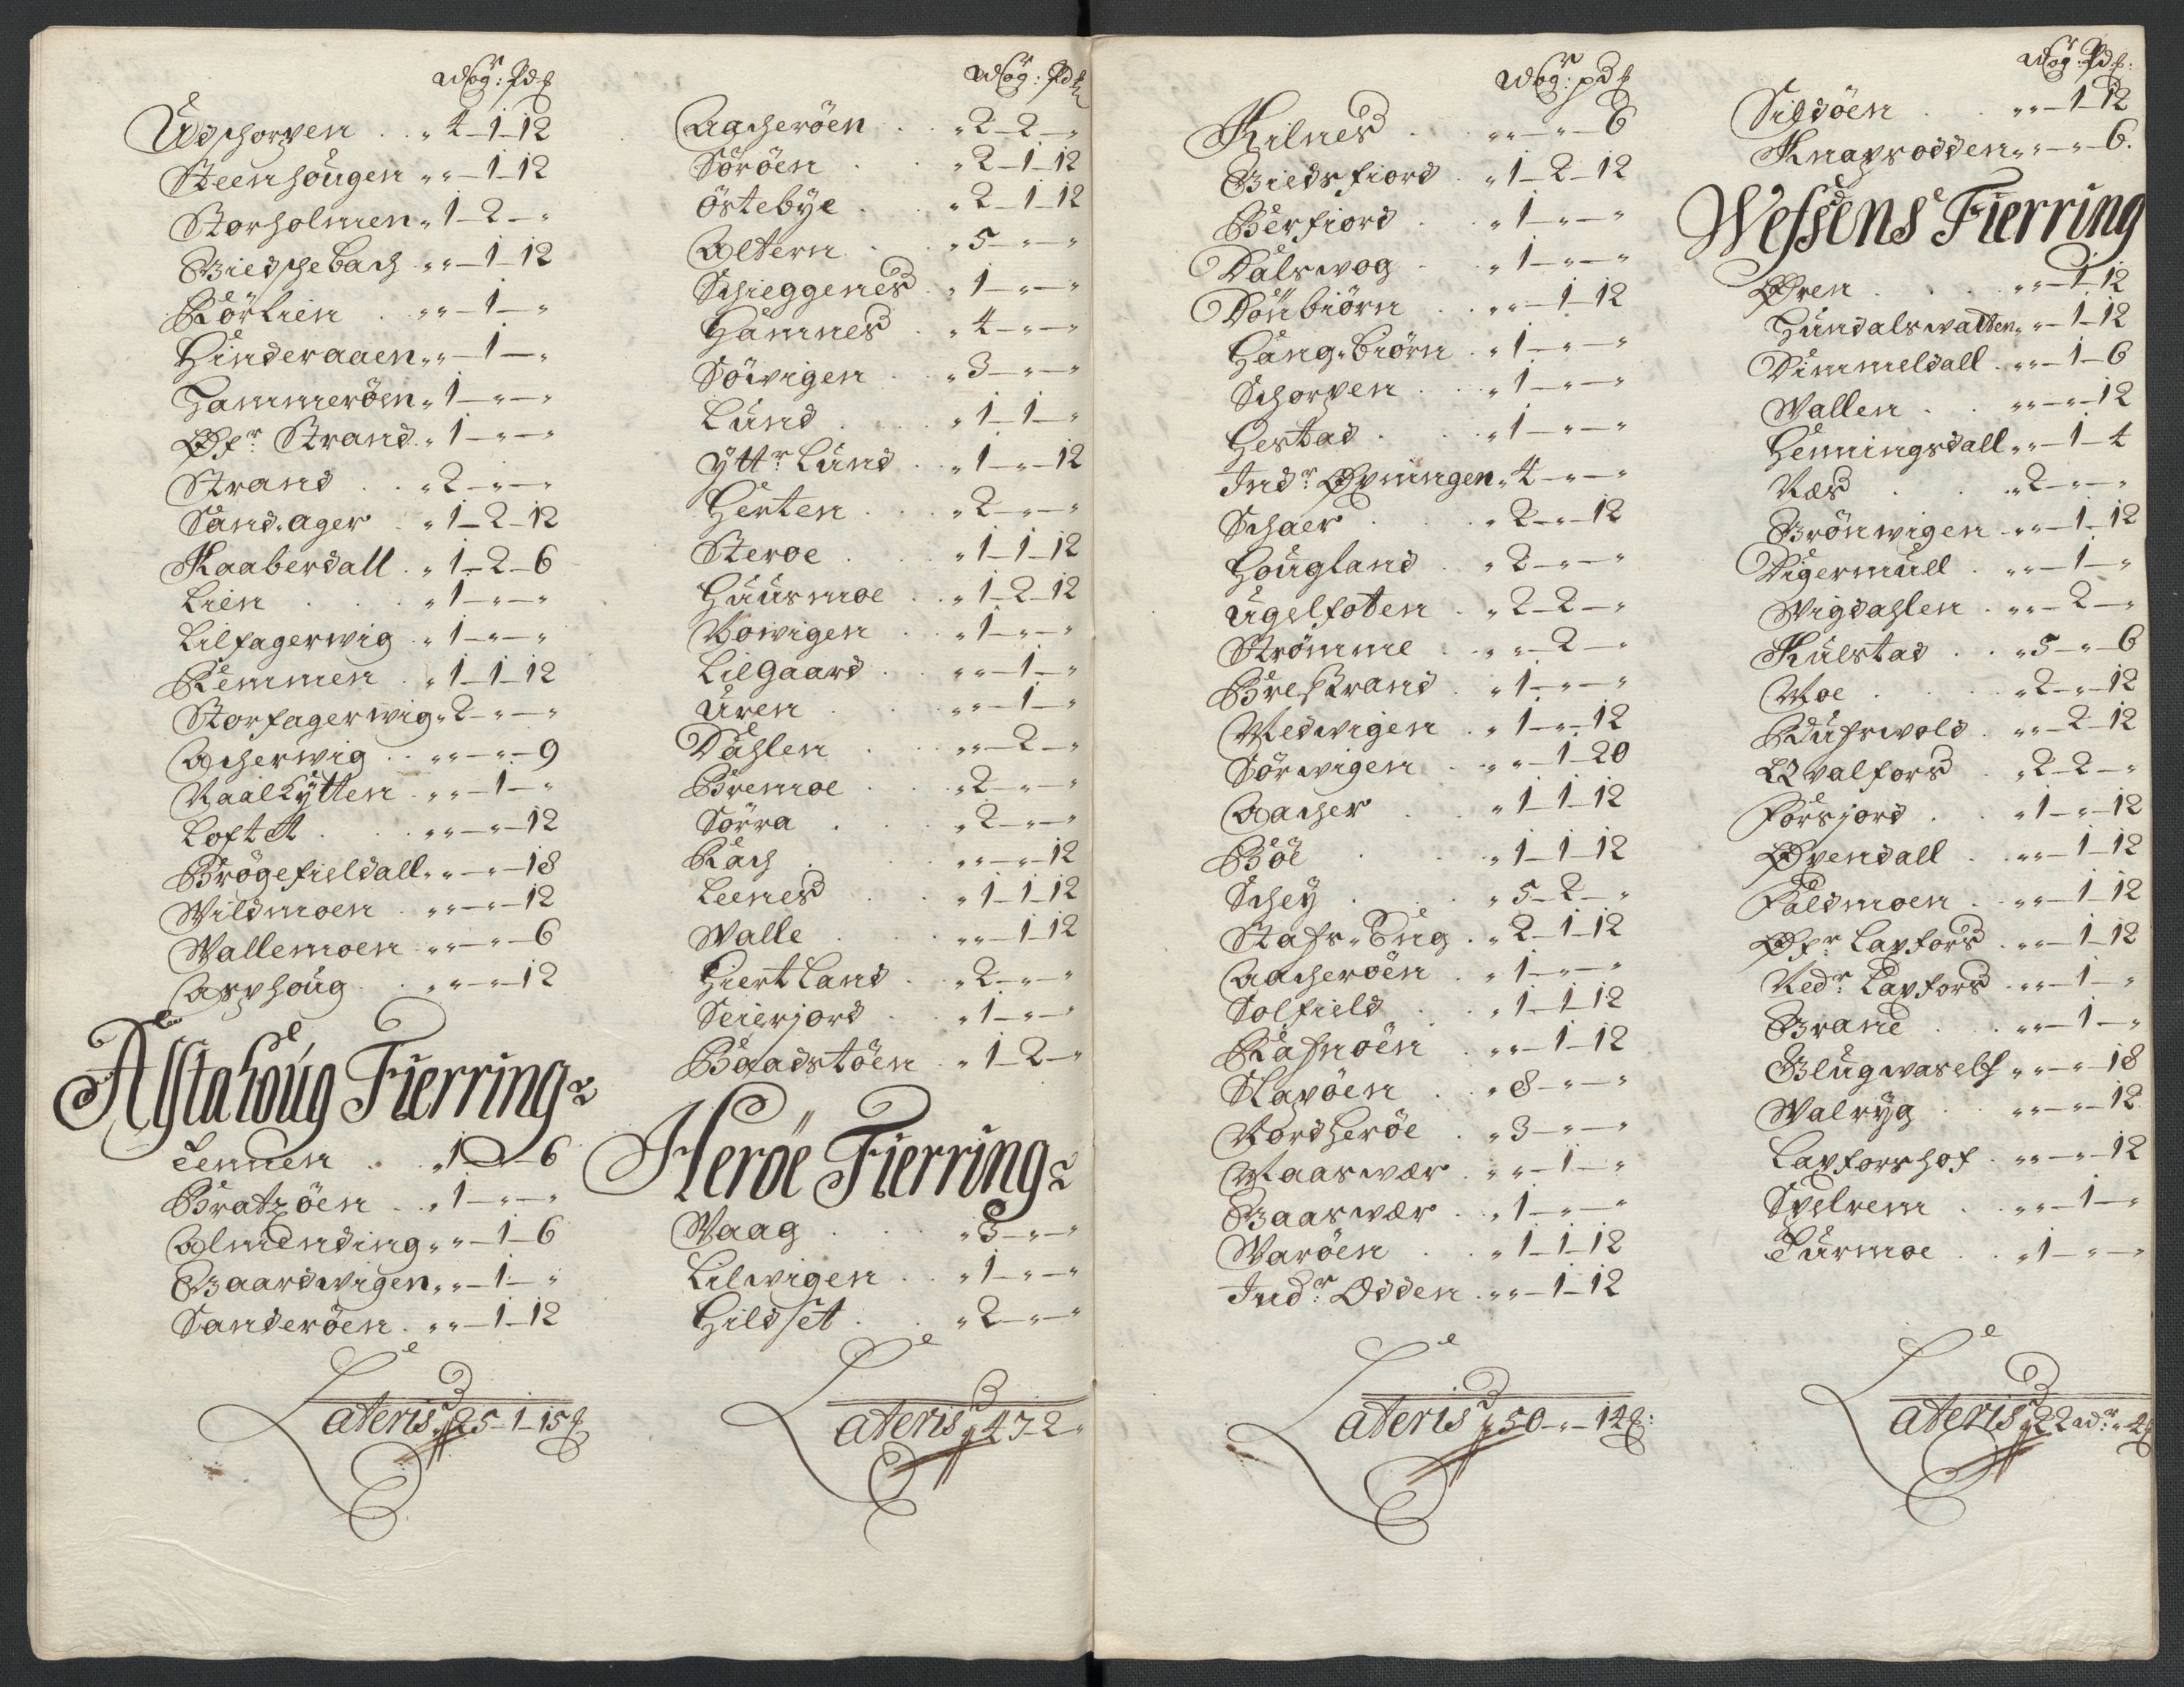 Wog: Pd ℔
Udschorpen . . „ 4–1–12
Steenhougen „ „ –1–12
Storholmen „ 1–2–„
Giedschebach „ „ –1–12
Rörlien . „ „ –1–„
Hinderaaen „ „ –1–„
Hammeröen „ 1–„–„
Øfr Strand „ 1–„–„
Strand . . „ 2–„–„
Sandager . „ 1–2–12
Kaaberdall . „ 1–2–6
Lien . . . „ 1–„–„
Lilfagerwig . „ 1–„–„
Remmen . „ 1–1–12
Storfagerwig „ 2–„–„
Acherwig . . „ „ –„–9
Naalsytten . „ „ –1–„
Loftet . . . „ „ –„–12
Brögefieldall „ „ –„–18
Wildmoen . „ „ –„–12
Wallemoen . „ „ –„–6
Asphoug . . „ „ –„–12
Alstahoug Fierring
Tennen . . „ 1–„–6
Bratzöen . . „ 1–„–„
Almending „ „ –1–6
Gaardwigen „ „ –1–„
Sanderöen . „ „ –1–12
Lateris 25–1–15 ℔
Wog: Pd ℔
Aacheröen . . „ 2–2–„
Söröen . . „ 2–1–12
Östebÿe . . „ 2–1–12
Altern . . „ 5–„–„
Schieggenes . „ 1–„–„
Hamnes . „ 4–„–„
Söwigen . „ 3–„–„
Lund . . . „ 1–1–„
Ÿttr Lund . „ 1–„–12
Herten . . „ 2–„–„
Steroe . . „ 1–1–12
Huusmoe . „ 1–2–12
Nowigen . „ 1–„–„
Lilgaard . „ „ –1–„
Uren . . „ „ –1–„
Dahlen . . „ „ –2–„
Bremoe . . „ 2–„–„
Sörra . . „ 2–„–„
Rach . . „ „ –„–12
Leenes . . „ 1–1–12
Walle . . „ „ –1–12
Hiertland . „ 2–„–„
Seierjord . „ 1–„–„
Baadstöen . „ 1–2–„
Heröe Fierring
Waag . . . „ 3–„–„
Lilwigen . . „ 1–„–„
Gildset . . „ 2–„–„
Lateris 47–2–„
Wog: pd ℔
Kilnes . . „ „ –„–6
Giedsfiord . „ 1–2–12
Berfiord . „ 1–„–„
Dalswog . „ 1–„–„
Dönbiörn . . „ „ –1–12
Hang-biörn . „ 1–„–„
Schorpen . . „ 1–„–„
Hestad . . „ 1–„–„
Indr Øpningen „ 4–„–„
Schaer . . „ 2–„–12
Hougland . „ 2–„–„
Ugelfoten . „ 2–2–„
Strömme . „ „ –2–„
Brestrand . „ 1–„–„
Medwigen . „ 1–„–12
Sörwigen . „ „ –1–20
Aacher . . „ 1–1–12
Böe . . „ 1–1–12
Schey . . „ 5–2–„
Stafs-Eng . „ 2–1–12
Aacheröen . „ 1–„–„
Solfield . . „ 1–1–12
Rafnöen . „ „ –1–12
Slapöen . „ 8–„–„
Nordheröe . „ 3–„–„
Maaswær . „ „ –1–„
Gaaswær . „ 1–„–„
Waröen . . „ 1–1–12
Indr Odden . „ „ –1–12
Lateris 50–„–14 ℔:
Wog: Pd ℔:
Sildöen . . „ „ –1–12
Knapsodden „ „ –„–6.
Wefsens Fierring
Øren . . . „ „ –1–12
Hundalswatten „ „ –1–12
Dimmeldall . „ „ –1–6
Wallen . . „ „ –„–12
Henningsdall „ „ –1–4
Næs . . . „ 2–„–„
Grönwigen . „ „ –1–12
Digermull . „ „ –1–„
Wigdahlen . „ „ –2–„
Kulstad . . „ 5–„–6
Moe . . . „ 2–„–12
Rdufswold . „ „ –2–12
Qvalfors . „ 2–2–„
Forsjord . . „ 1–„–12
Øpendall . „ „ –1–12
Faldmoen . „ „ –1–12
Øfr Lapfors . „ „ –1–12
Nedr Lapfors . „ „ –1–„
Grane . . „ „ –1–„
Glugwaself „ „ –„–18
Walryg . . „ „ –„–12
Lapforshof . „ „ –„–12
Spelrem . . „ „ –1–„
Turmoe . . „ 1–„–„
Lateris 22 wr „ 4 ℔